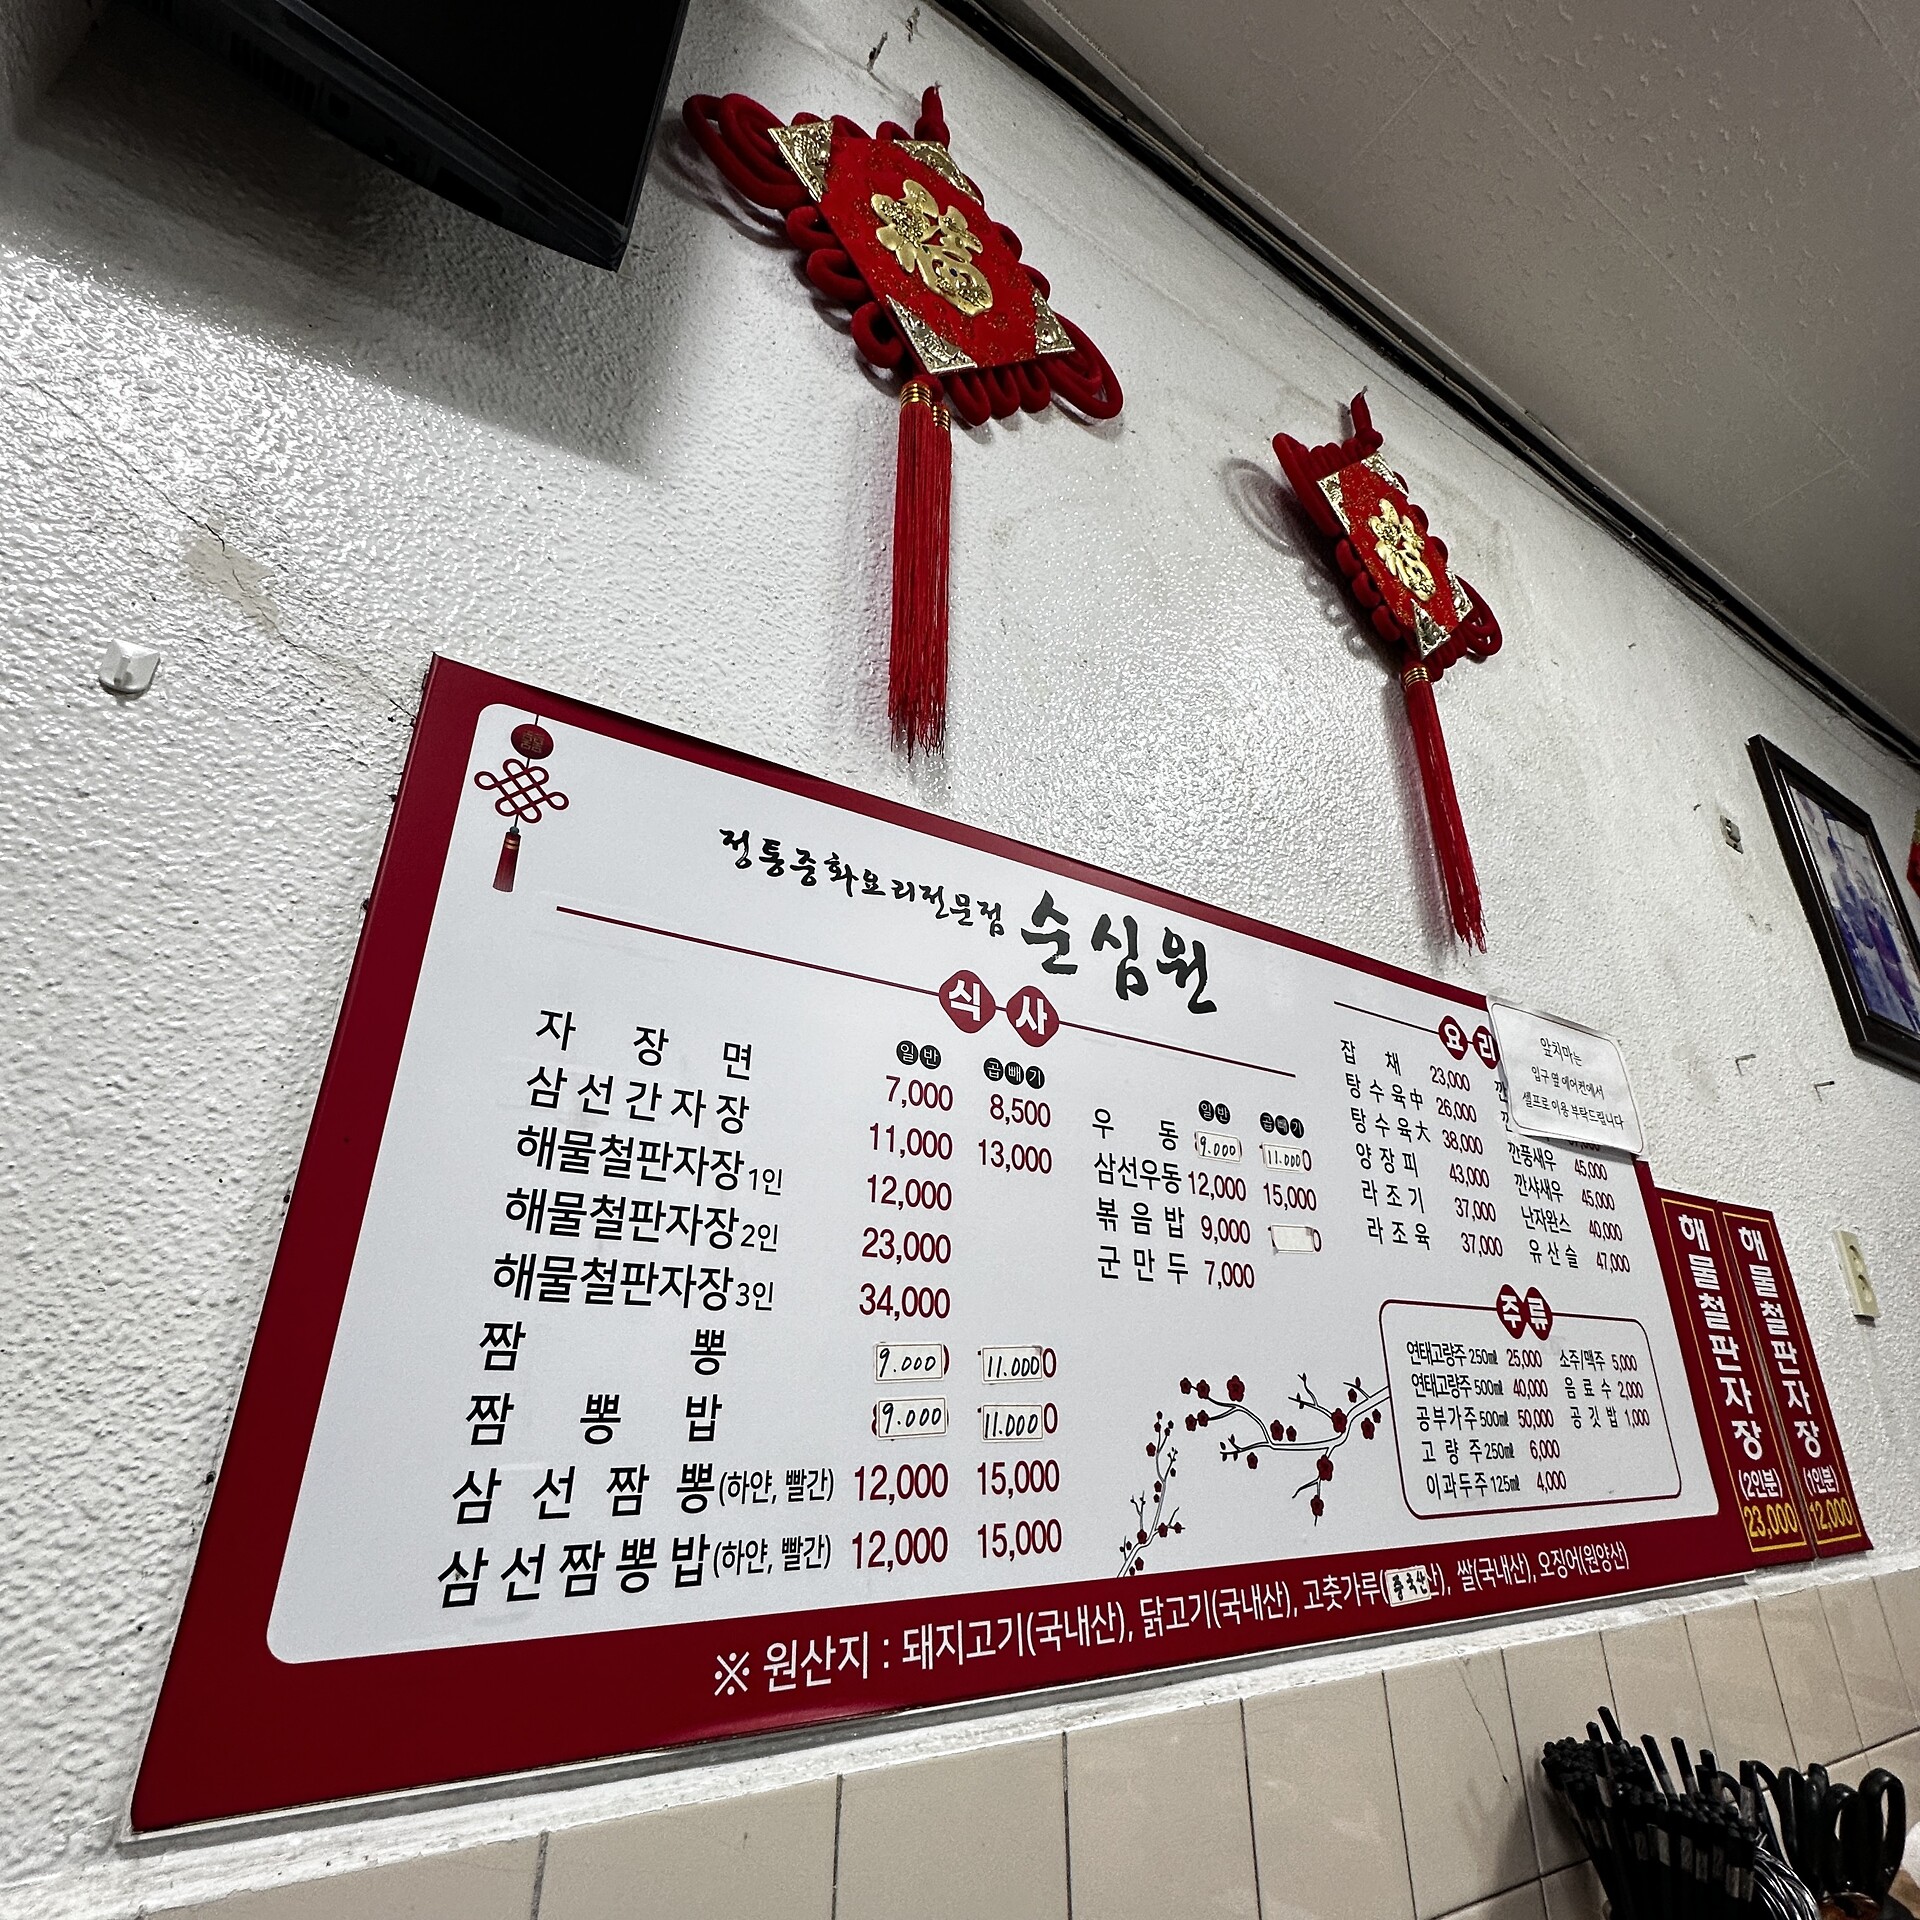 福
福
정통중화요리전문점 순심원
식사
일반 곱빼기
자장면 7,000 8,500
삼선간자장 11,000 13,000
해물철판자장 1인 12,000
해물철판자장 2인 23,000
해물철판자장 3인 34,000
짬뽕 9.000 11.000
짬뽕밥 9.000 11.000
삼선짬뽕(하얀, 빨간) 12,000 15,000
삼선짬뽕밥(하얀, 빨간) 12,000 15,000
일반 곱빼기
우동 9.000 11.000
삼선우동 12,000 15,000
볶음밥 9,000
군만두 7,000
요리
잡채 23,000
탕수육中 26,000
탕수육大 38,000
양장피 43,000
라조기 37,000
라조육 37,000
앞치마는
입구 옆 에어컨에서
셀프로 이용 부탁드립니다
깐풍새우 45,000
깐샤새우 45,000
난자완스 40,000
유산슬 47,000
주류
연태고량주 250㎖ 25,000 소주/맥주 5,000
연태고량주 500㎖ 40,000 음료수 2,000
공부가주 500㎖ 50,000 공깃밥 1,000
고량주 250㎖ 6,000
이과두주 125㎖ 4,000
※ 원산지 : 돼지고기(국내산), 닭고기(국내산), 고춧가루(중국산), 쌀(국내산), 오징어(원양산)
해물철판자장 (2인분) 23,000
해물철판자장 (1인분) 12,000